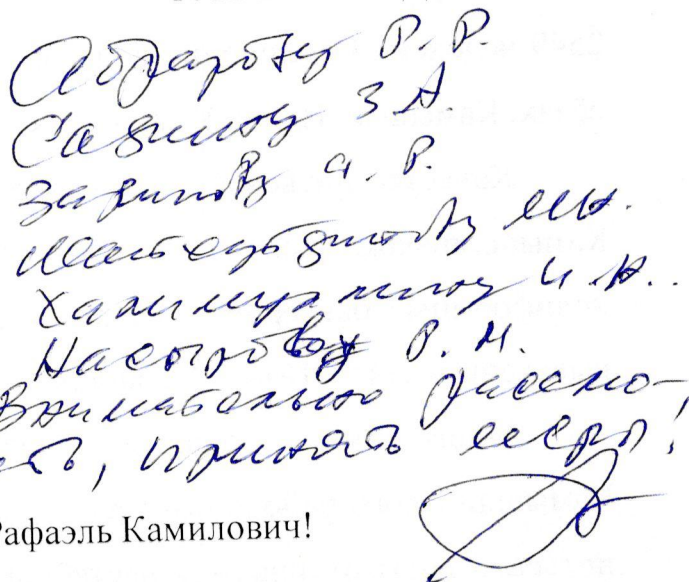 Абдарову Р. Р.
Садыкову З А.
Зарипову А. Р.
М. Н.
Халимуллину И. Н.
Насырову Р. М.
Внимательно рассмо-
еть, принять меры!
Рафаэль Камилович!